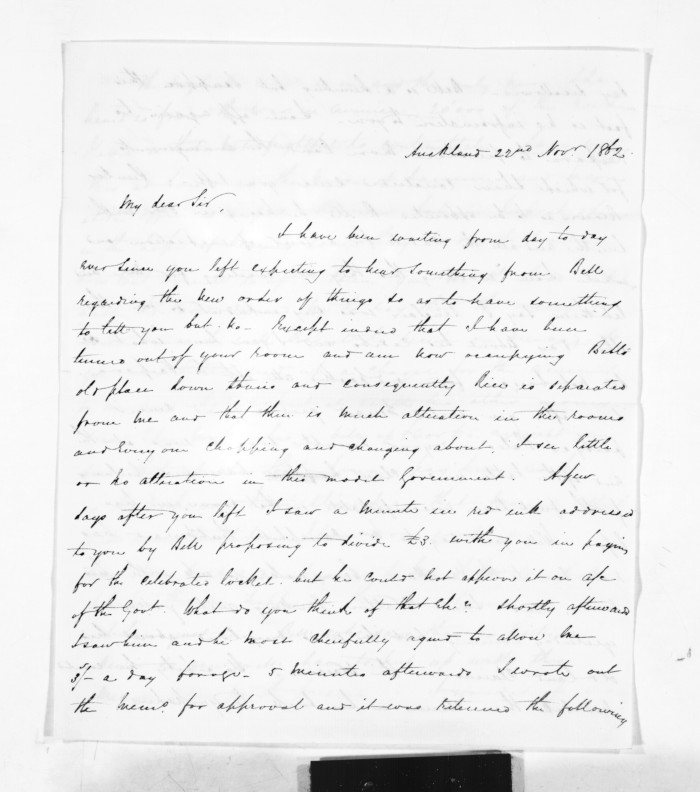 Auckland 22nd Novr 1862.
My dear Sir,
I have been waiting from day to day
ever since you left expecting to hear something from Bell
regarding the new order of things so as to have something
to tell you but no. Except indeed that I have been
turned out of your room and am now occupying Bell's
old place down stairs and consequently is separated
from me and that there is much alteration in the rooms
and everyone chopping and changing about, I see little
or no alteration in this model Government. A few
days after you left I saw a minute in red ink addressed
to you by Bell proposing to divide £3. with you in paying
for the celebrated locket. but he could not approve it on a/c
of the Govt. What do you think of that Eh? Shortly afterwards
I saw him and he most cheerfully agreed to allow me
5/- a day forage. 5 minutes afterwards I wrote out
the memo. for approval and it was returned the following